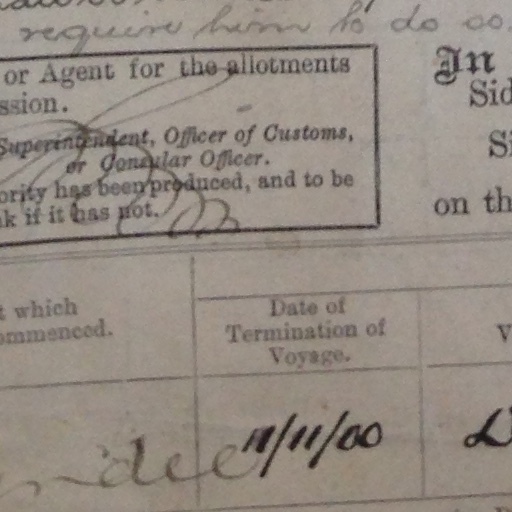 require him to do so.
or Agent for the allotments
ssion.
Superintendent, Officer of Customs,
or Consular Officer.
ority has been produced, and to be
nk if it has not.
In
Sid
Si
on th
t which
ommenced.
Date of
Termination of
Voyage.
V
11/11/00